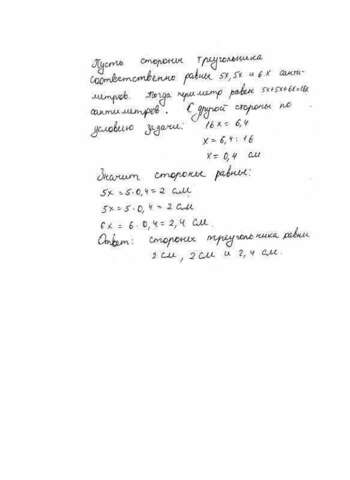 Пусть стороны треугольника
соответственно равны 5x, 5x и 6x санти-
метров. Тогда периметр равен 5x+5x+6x=16x
сантиметров. С другой стороны по
условию задачи: 16x = 6,4
x = 6,4 : 16
x = 0,4 см
Значит стороны равны:
5x = 5·0,4 = 2 см
5x = 5·0,4 = 2 см
6x = 6·0,4 = 2,4 см.
Ответ: стороны треугольника равны
2 см, 2 см и 2,4 см.